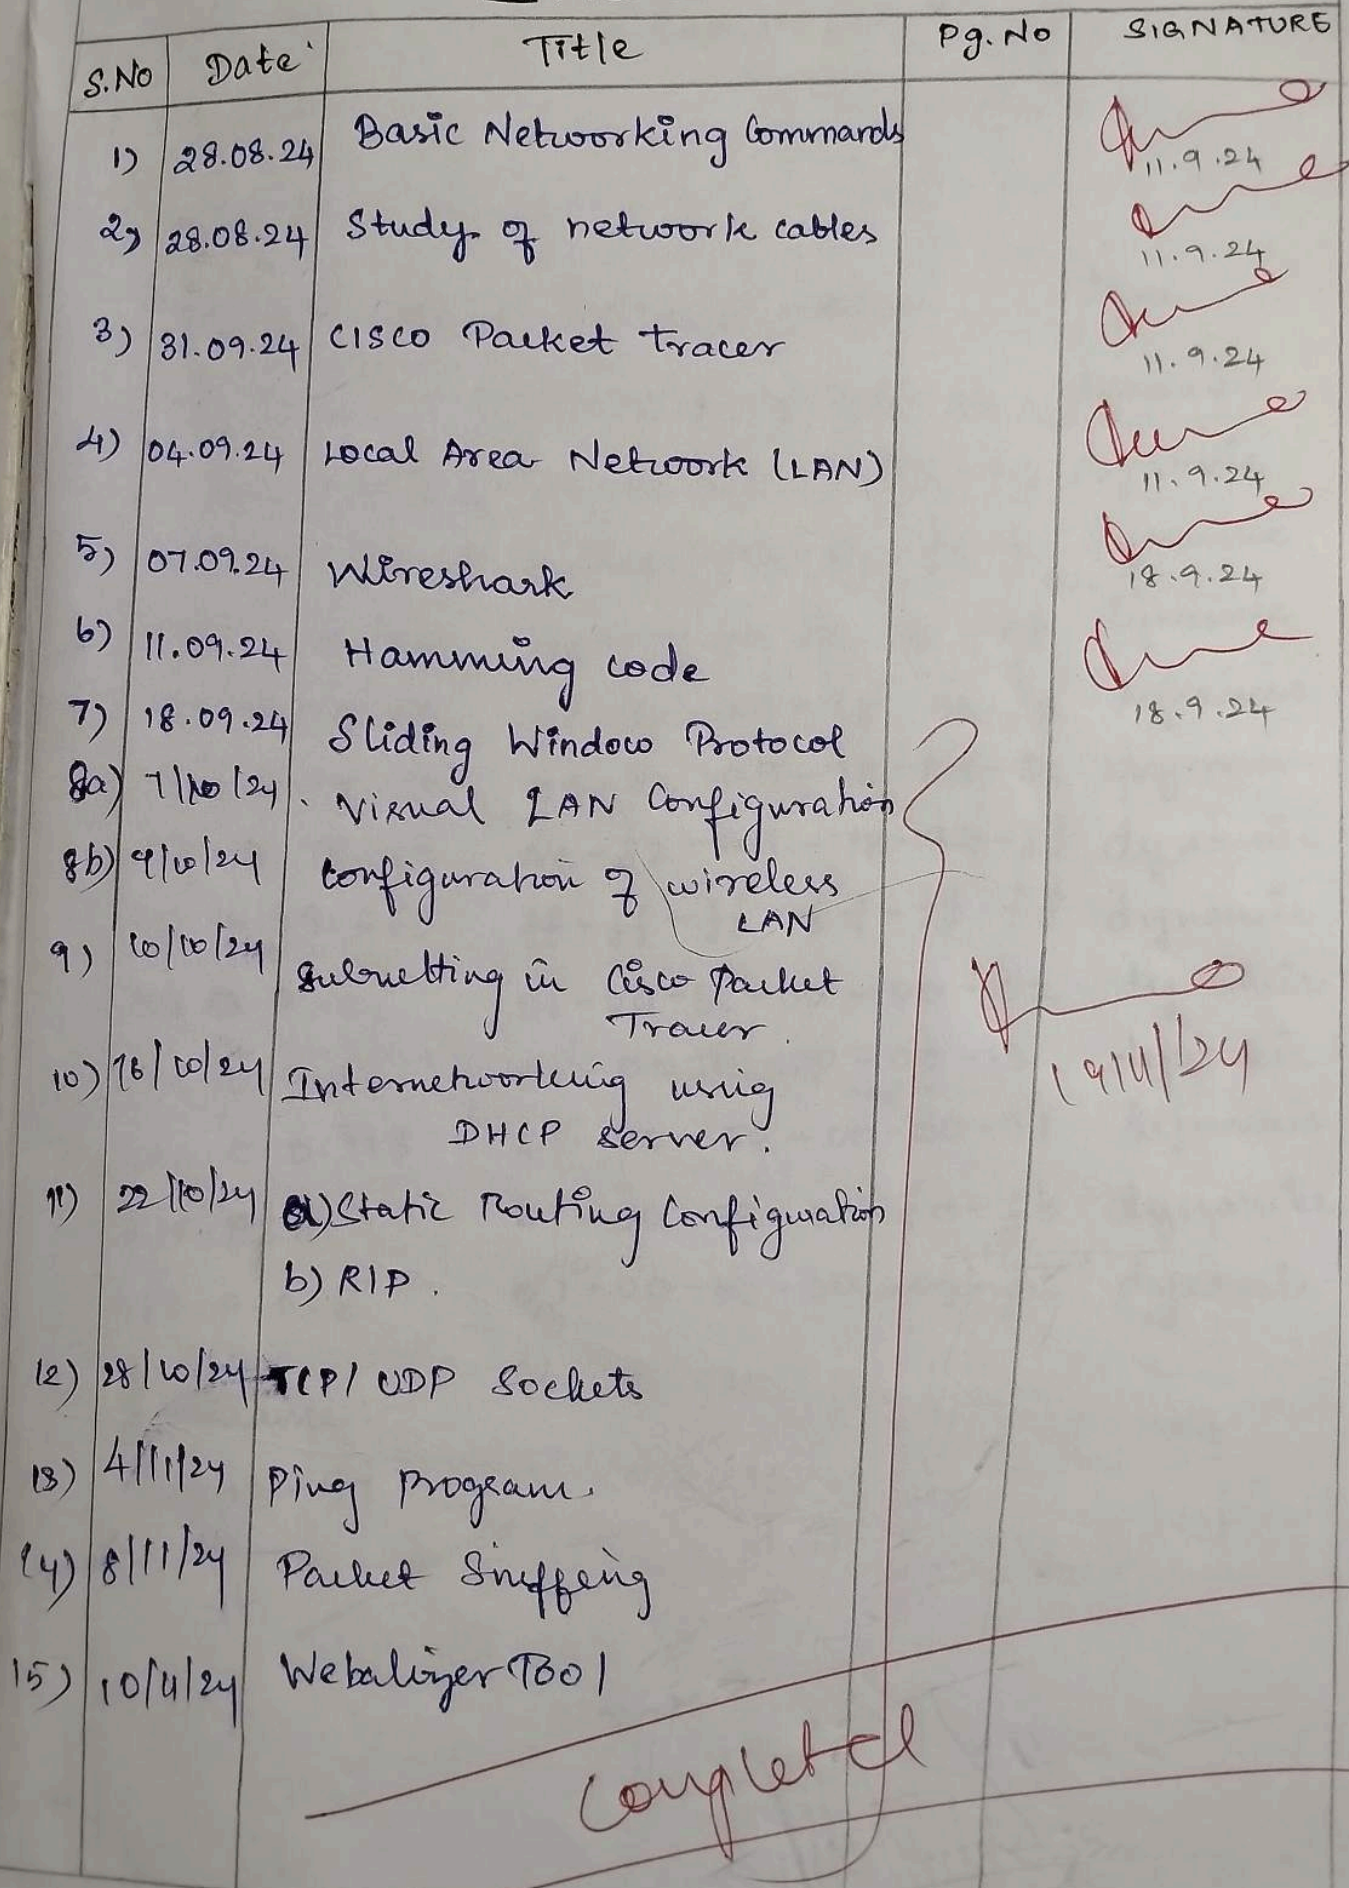 S.No Date Title Pg.No SIGNATURE
1) 28.08.24 Basic Networking Commands
11.9.24
2) 28.08.24 Study of network cables
11.9.24
3) 31.09.24 CISCO Packet Tracer
11.9.24
4) 04.09.24 Local Area Network (LAN)
11.9.24
5) 07.09.24 Wireshark
18.9.24
6) 11.09.24 Hamming code
18.9.24
7) 18.09.24 Sliding Window Protocol
8a) 7/10/24 Visual LAN Configuration
8b) 9/10/24 Configuration of wireless
LAN
9) 10/10/24 Subnetting in Cisco Packet
Tracer.
19/11/24
10) 16/10/24 Internetworking using
DHCP server.
11) 22/10/24 a) Static Routing Configuration
b) RIP.
12) 28/10/24 TCP/UDP Sockets
13) 4/11/24 Ping Program.
14) 8/11/24 Packet Sniffing
15) 10/11/24 Webalizer Tool
Completed